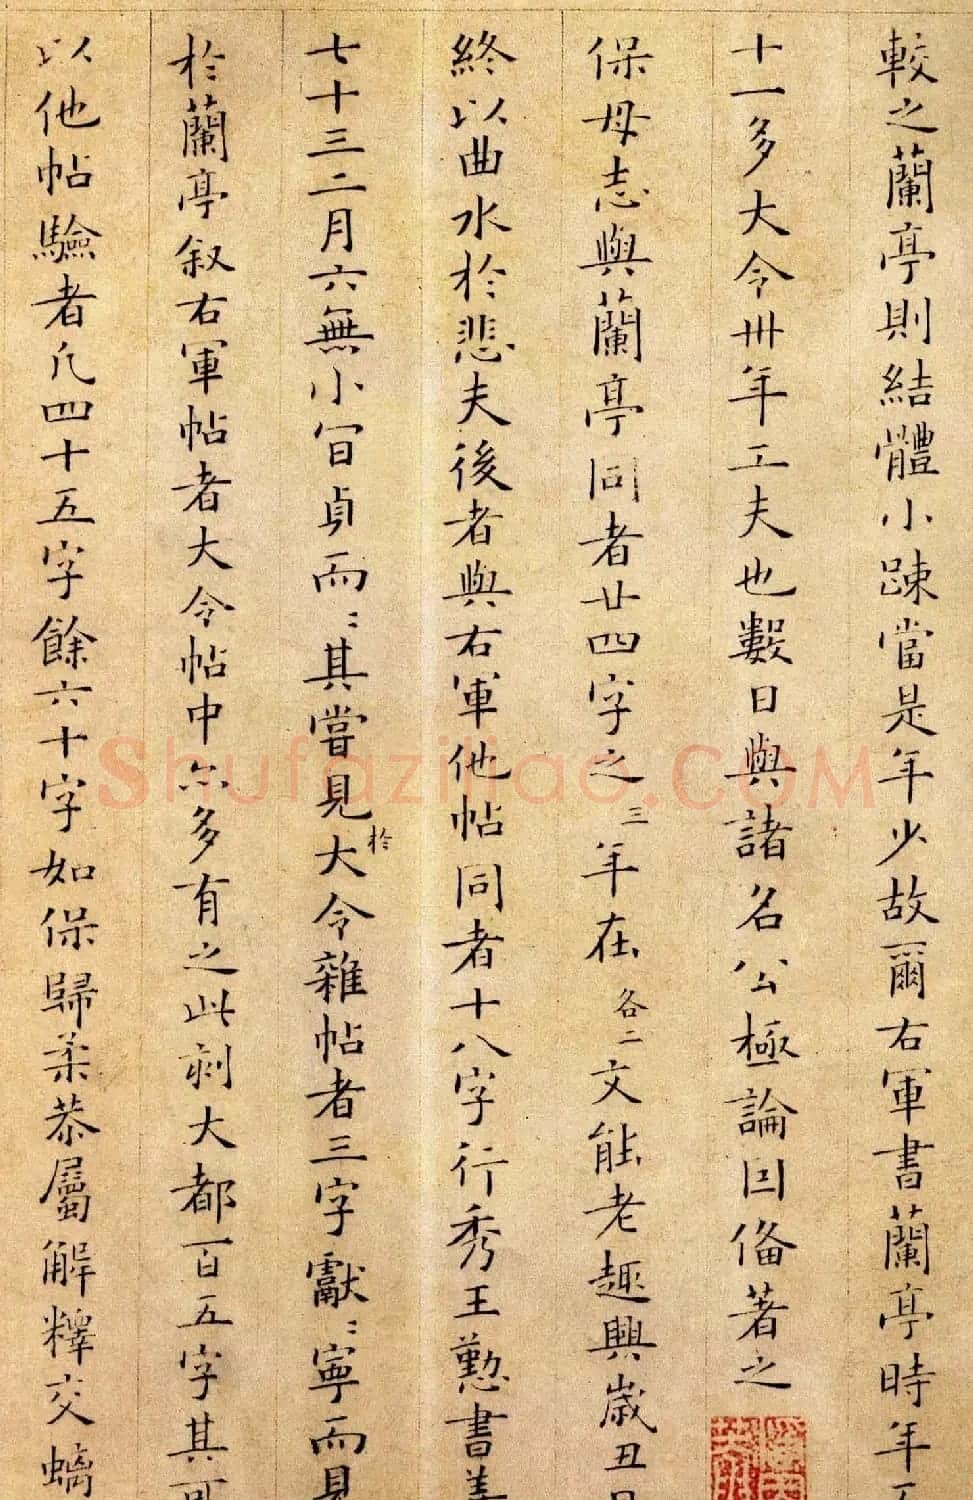 較之蘭亭則結體小疎當是年少故爾右軍書蘭亭時年
十一多大令卅年工夫也數日與諸名公極論因俻著之
保母志與蘭亭同者廿四字之三年在各二文能老趣興歲丑
終以曲水於悲夫後者與右軍他帖同者十八字行秀王懃書
七十三二月六無小官貞而〻其嘗見於大令雜帖者三字獻〻寧而見
於蘭亭叙右軍帖者大令帖中尒多有之此剥大都百五字其可
以他帖驗者凡四十五字餘六十字如保歸柔恭屬解釋交螭
Shufaziliao.COM